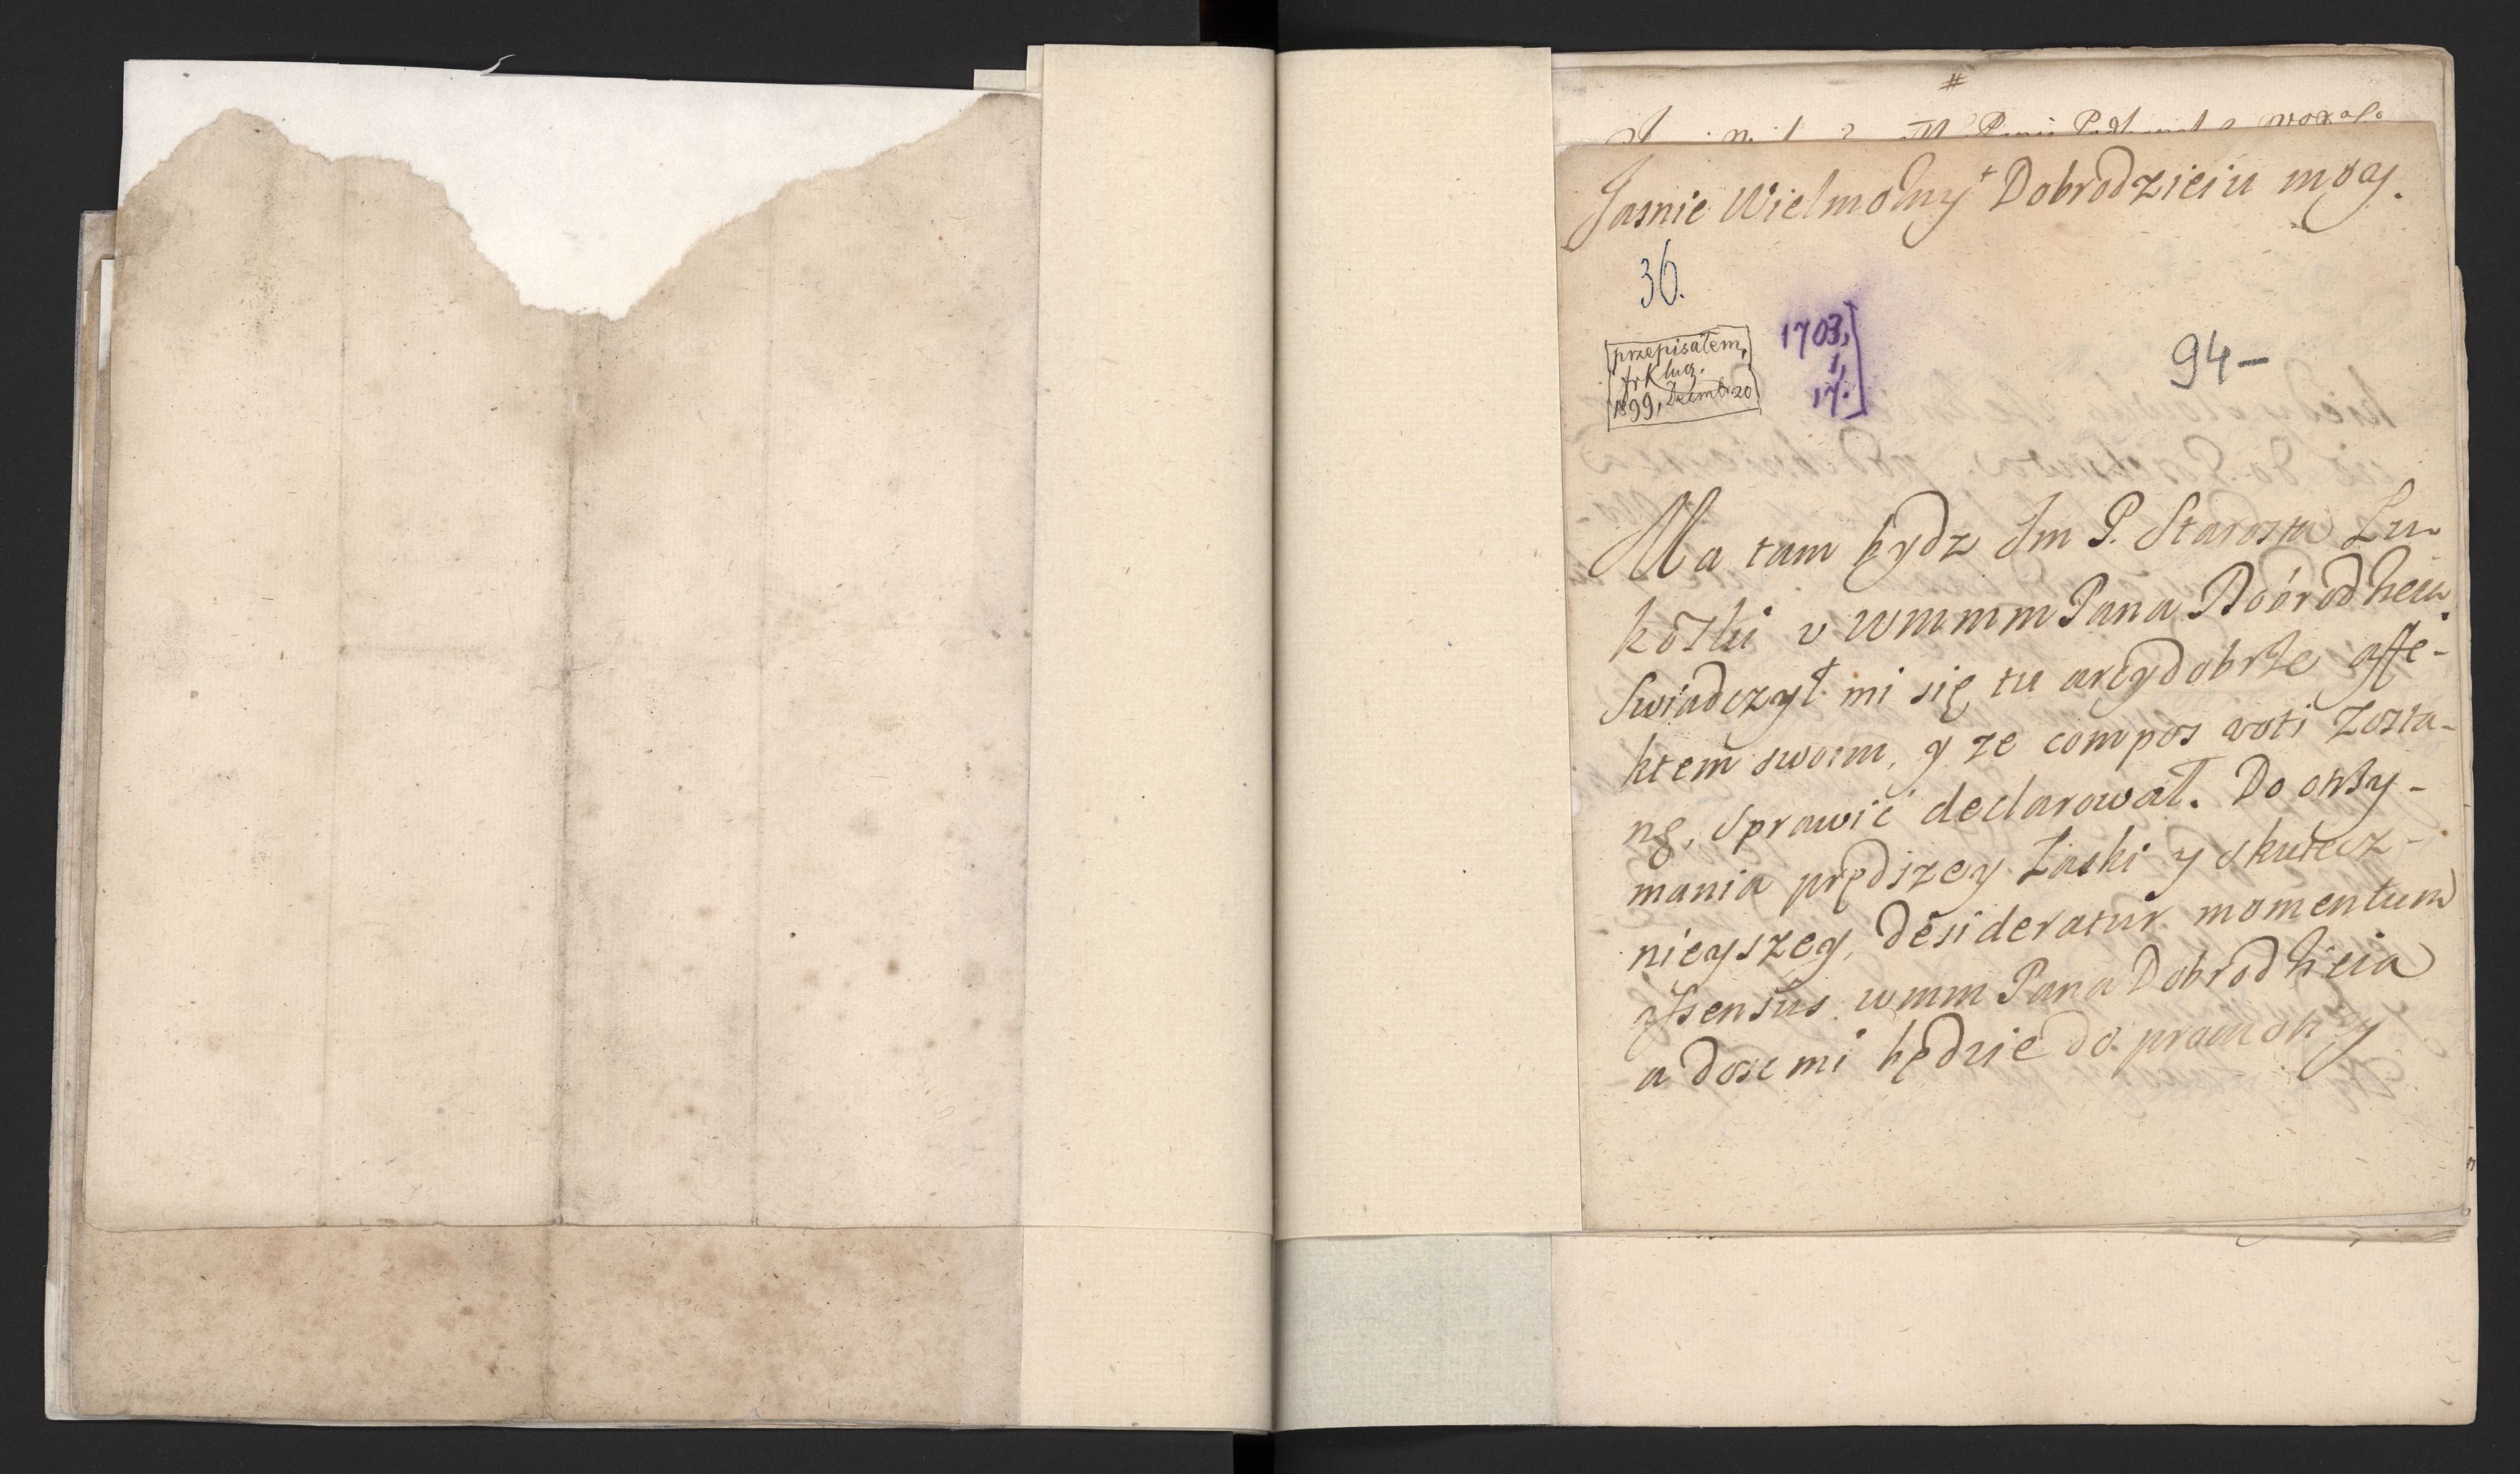 #
Jasnie Wielmożny Dobrodzieiu moy.
36.
przepisałem,
fr Klucz.
1899, Decembr 20
1703,
1,
17.
94-
Ma tam bydz Im P. Starosta Łu-
kowski v WMMM Pana Dobrodzieia.
Swiadczył mi się tu arcydobrze affe-
ktem swoim, y ze compos voti zosta-
nę, sprawić declarował. Do otrzy-
mania prędszey Łaski y skutecz-
nieyszey, desideratur momentum
assensus wmm Pana Dobrodzieia
a dosc mi będzie do